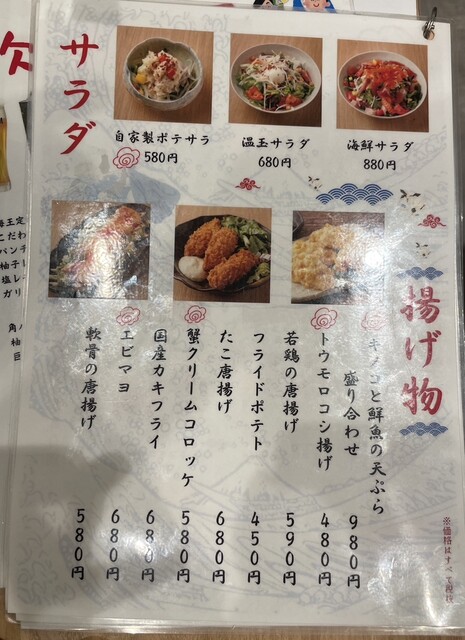 サラダ
自家製ポテサラ
580円
温玉サラダ
680円
海鮮サラダ
880円
揚げ物
キノコと鮮魚の天ぷら
盛り合わせ
980円
トウモロコシ揚げ
480円
若鶏の唐揚げ
590円
フライドポテト
450円
たこ唐揚げ
680円
蟹クリームコロッケ
580円
国産カキフライ
680円
エビマヨ
680円
軟骨の唐揚げ
580円
※価格はすべて税抜